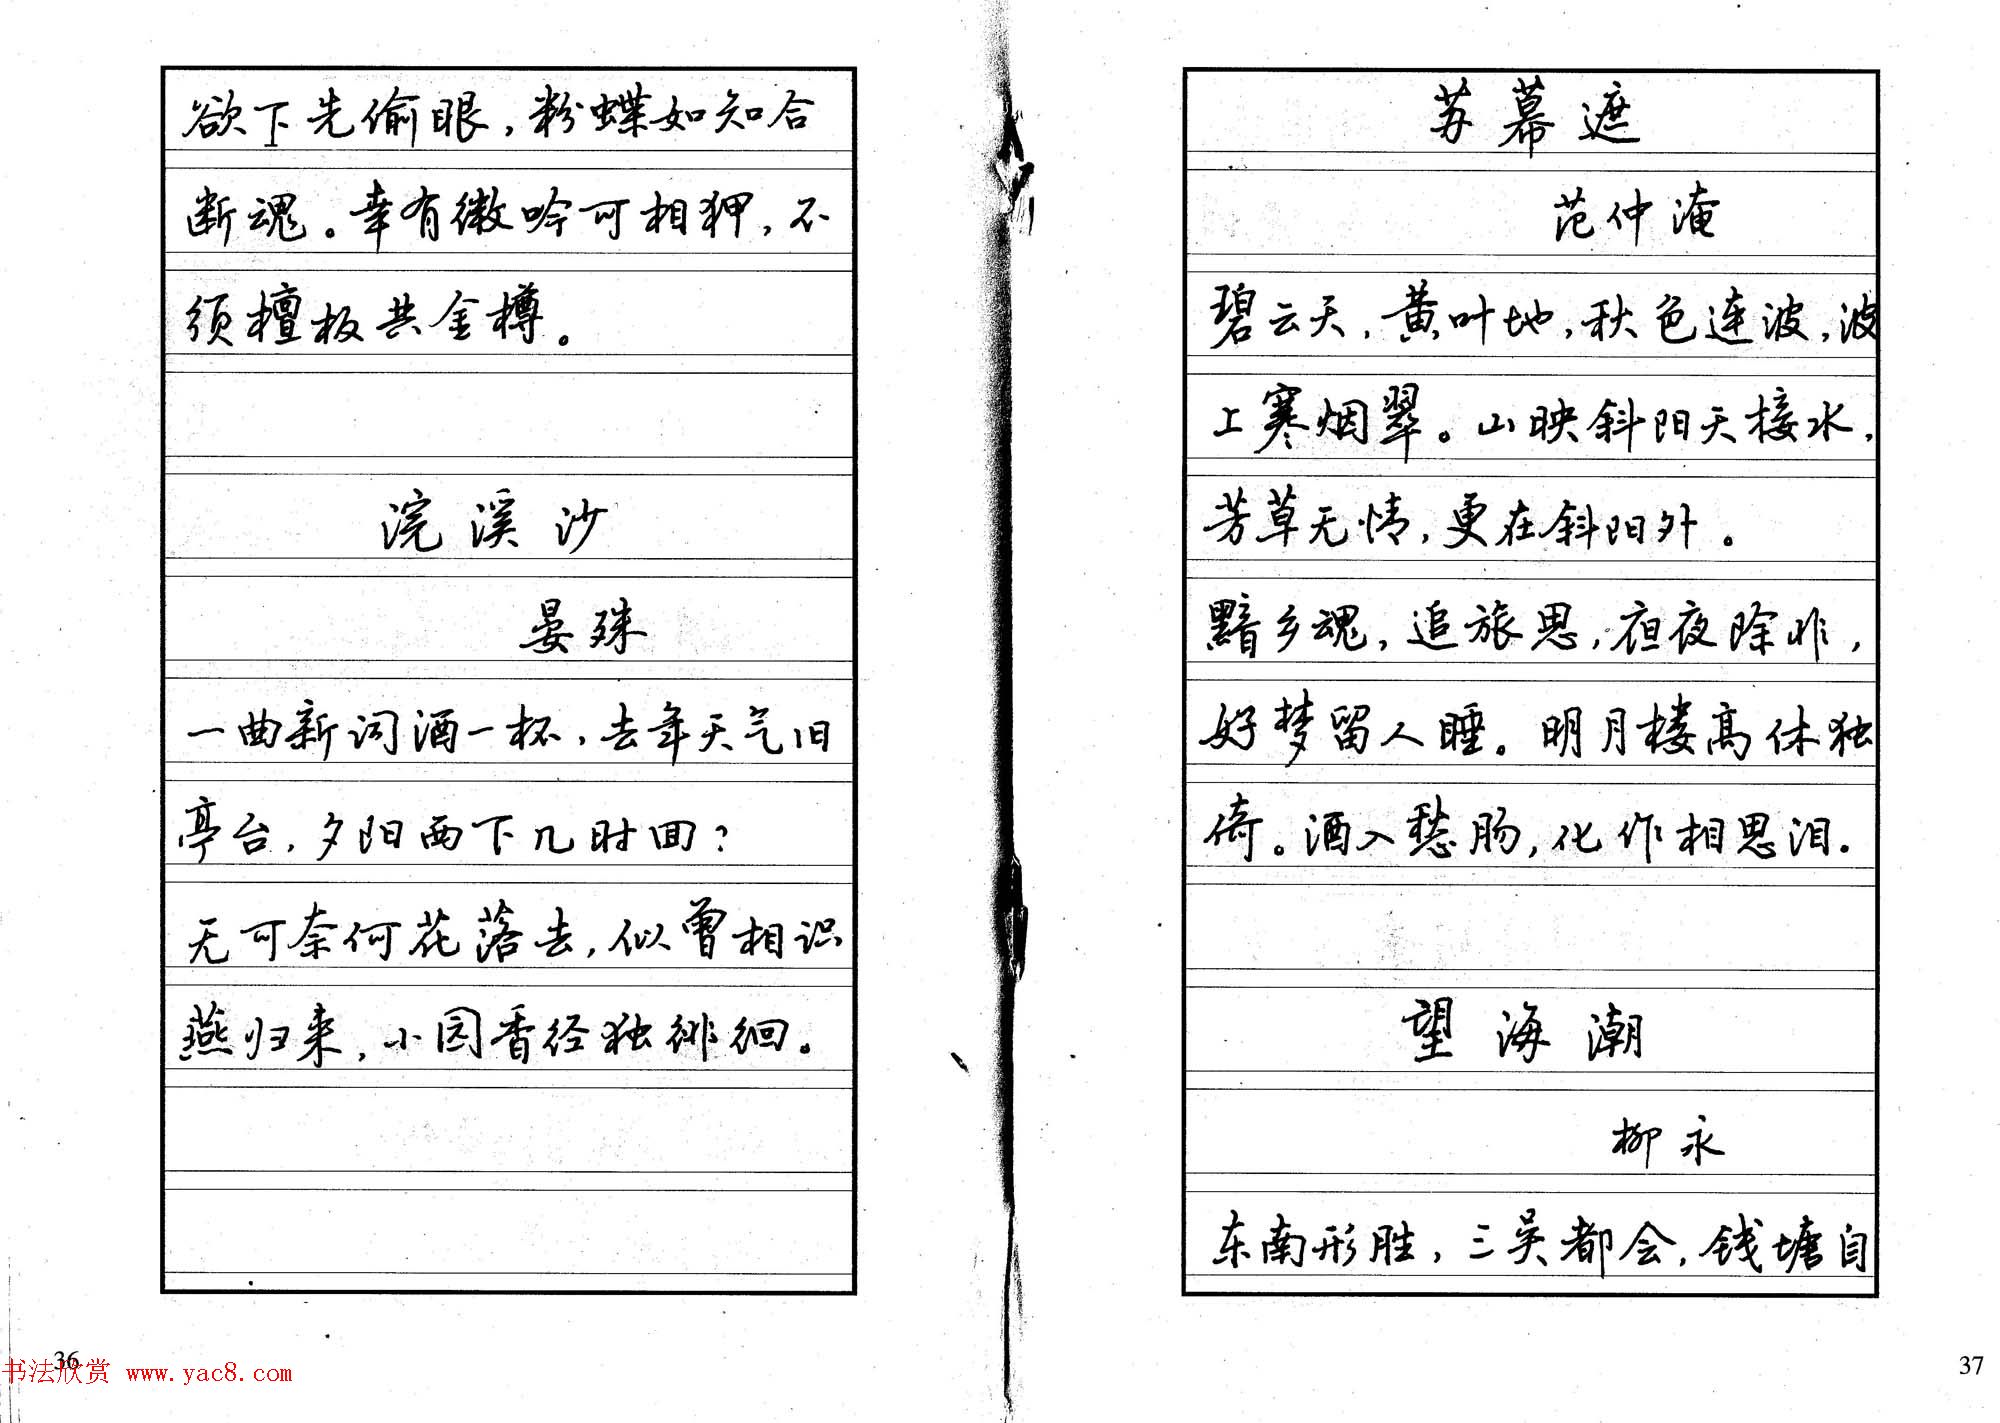 欲下先偷眼，粉蝶如知合
断魂。幸有微吟可相狎，不
须檀板共金樽。
浣溪沙
晏殊
一曲新词酒一杯，去年天气旧
亭台，夕阳西下几时回？
无可奈何花落去，似曾相识
燕归来，小园香径独徘徊。
36
书法欣赏 www.yac8.com
苏幕遮
范仲淹
碧云天，黄叶地，秋色连波，波
上寒烟翠。山映斜阳天接水，
芳草无情，更在斜阳外。
黯乡魂，追旅思，夜夜除非，
好梦留人睡。明月楼高休独
倚。酒入愁肠，化作相思泪．
望海潮
柳永
东南形胜，三吴都会，钱塘自
37